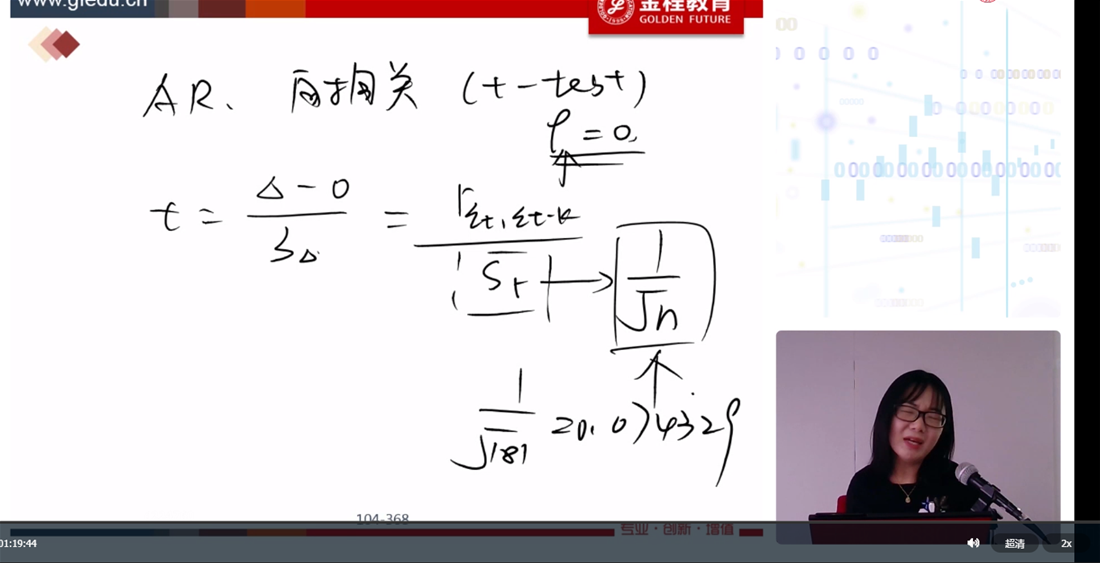 www.gfedu.cn
金程教育
GOLDEN FUTURE
AR、 自相关 (t-test)
ρ = 0
t = Δ - 0 / SΔ = r εt, εt-k / Sr → 1 / √n
1 / √181 = 0.074329
104-368
专业·创新·增值
01:19:44
超清
2x